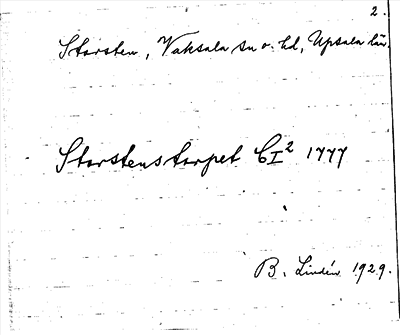 2.
Storsten, Vaksala sn o. hd, Upsala län.
Storstenstorpet CI² 1777
B. Lindén 1929.